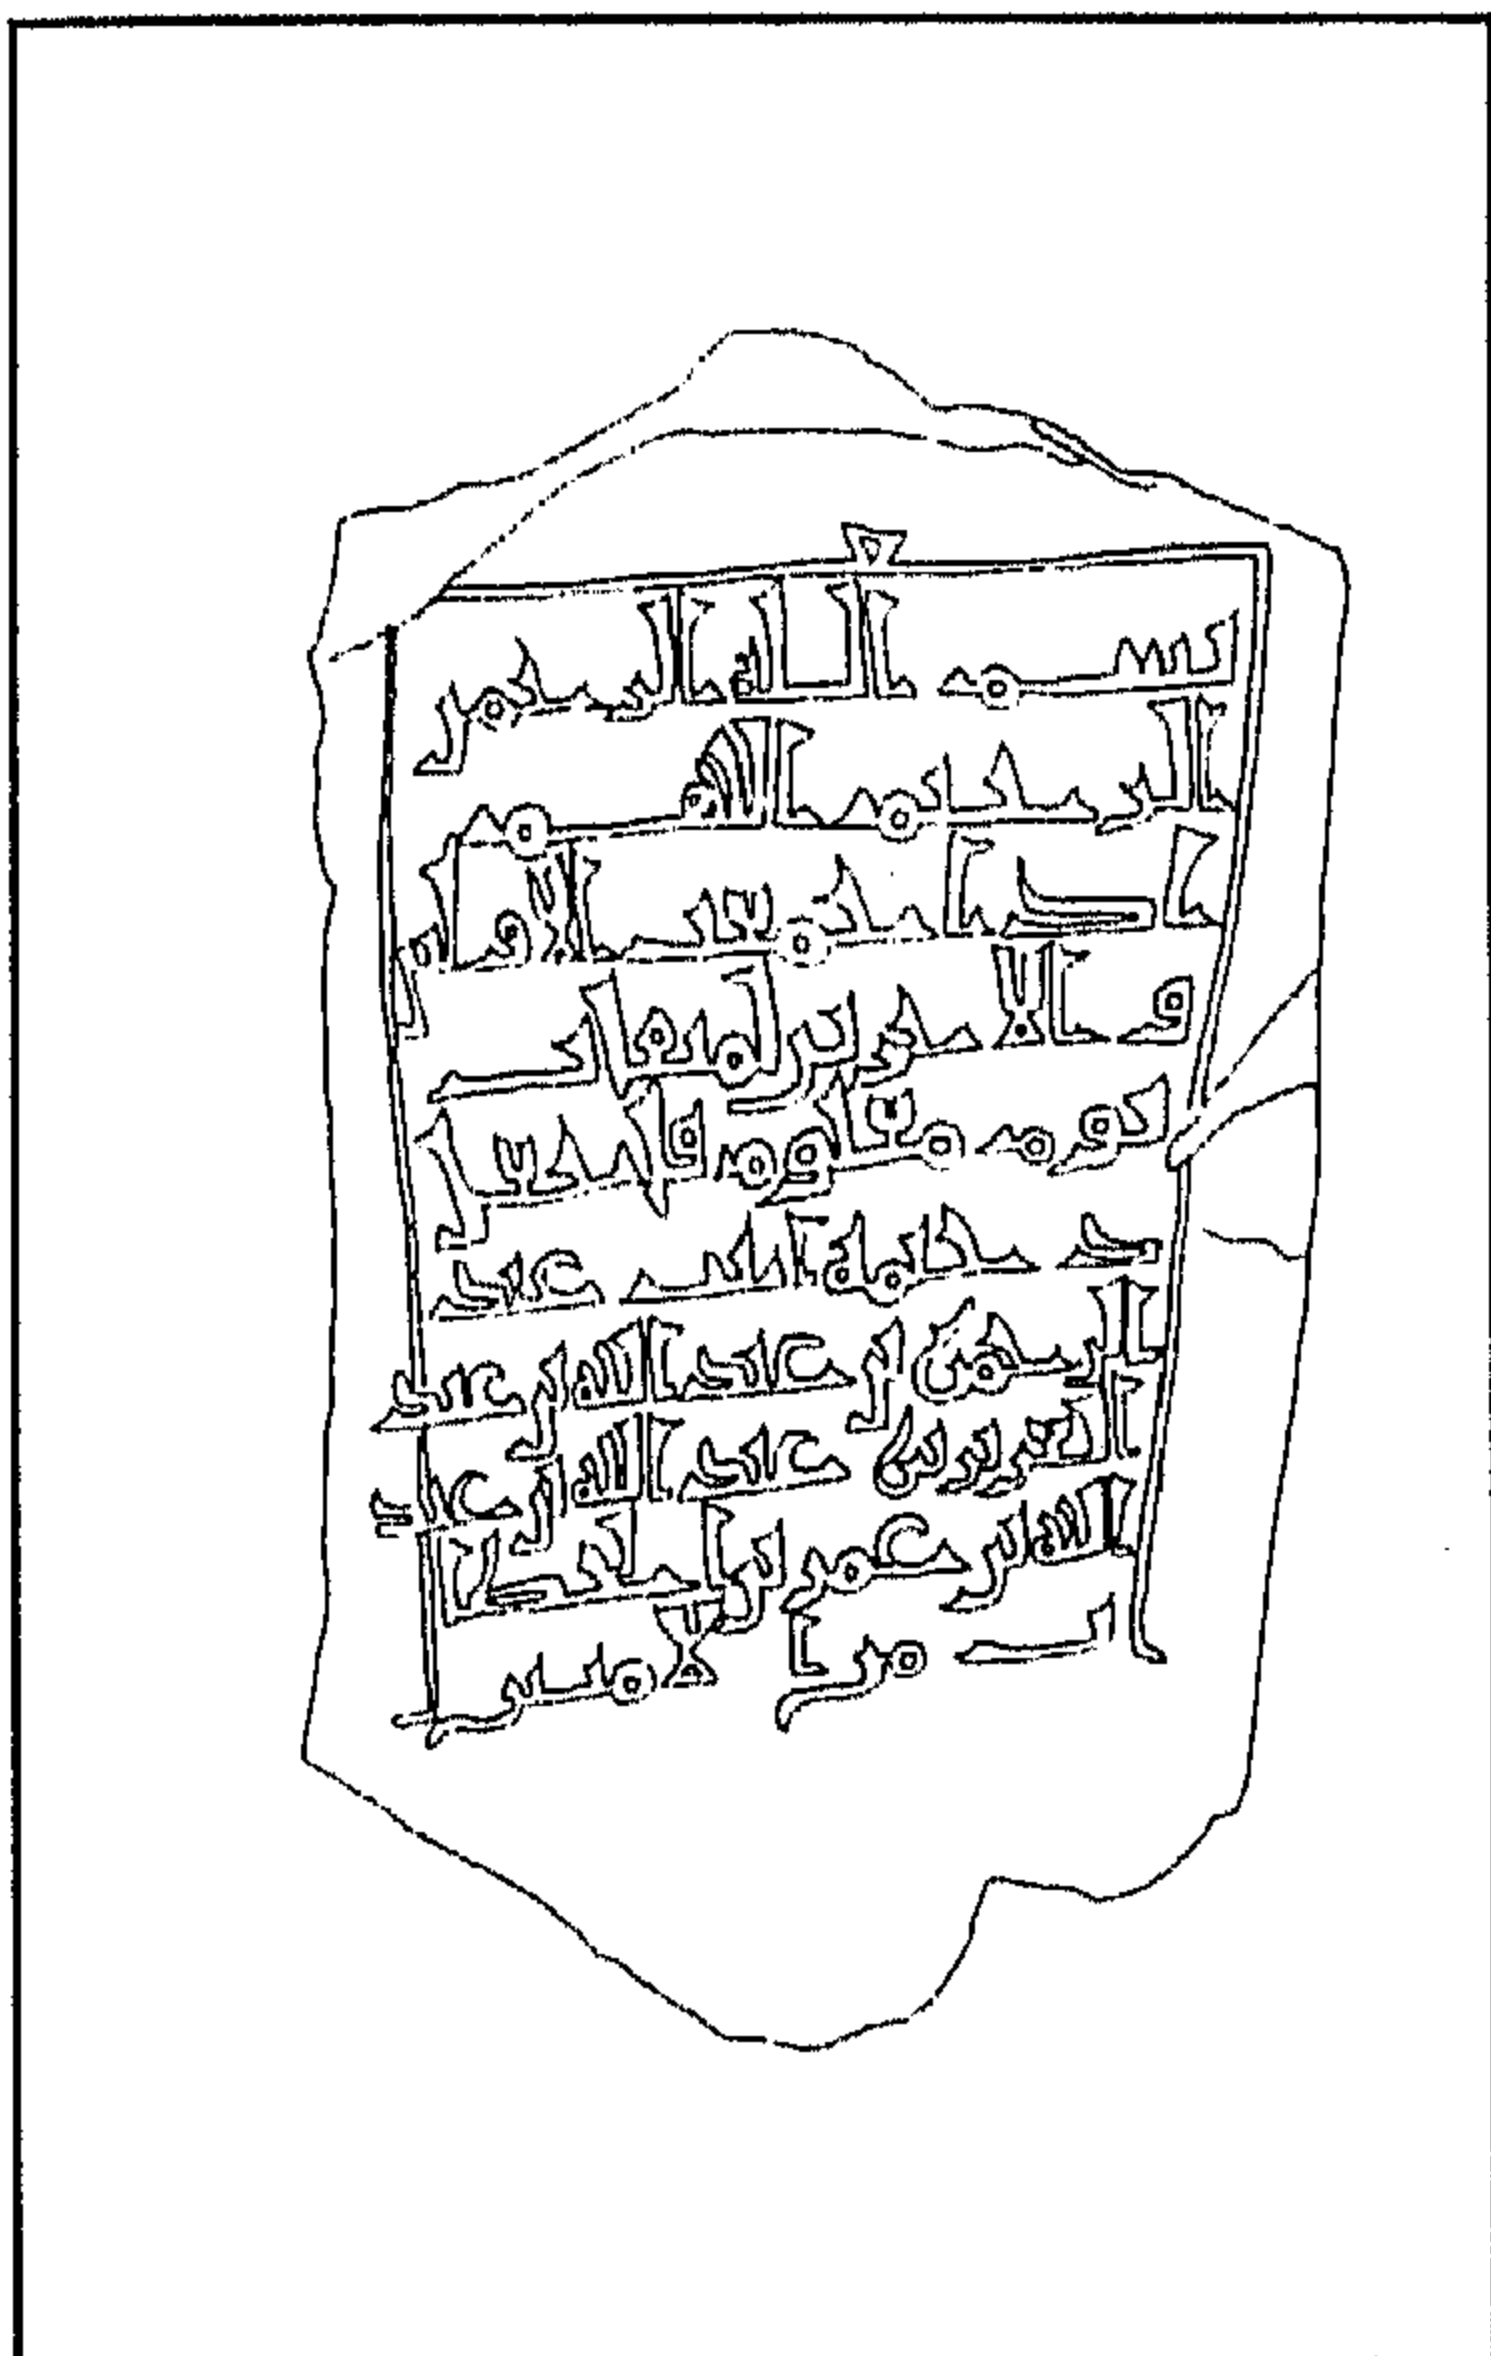 بسم الله الرحمن
الرحيم اللهم
اذا جمعت الاولين
والاخرين لميقات
يوم معلوم فاجعل
عبد
الرحمن بن عبد الله بن عبد
العزيز بن عبد الله بن عبد
الله بن عمر بن الخطاب
من الامنين